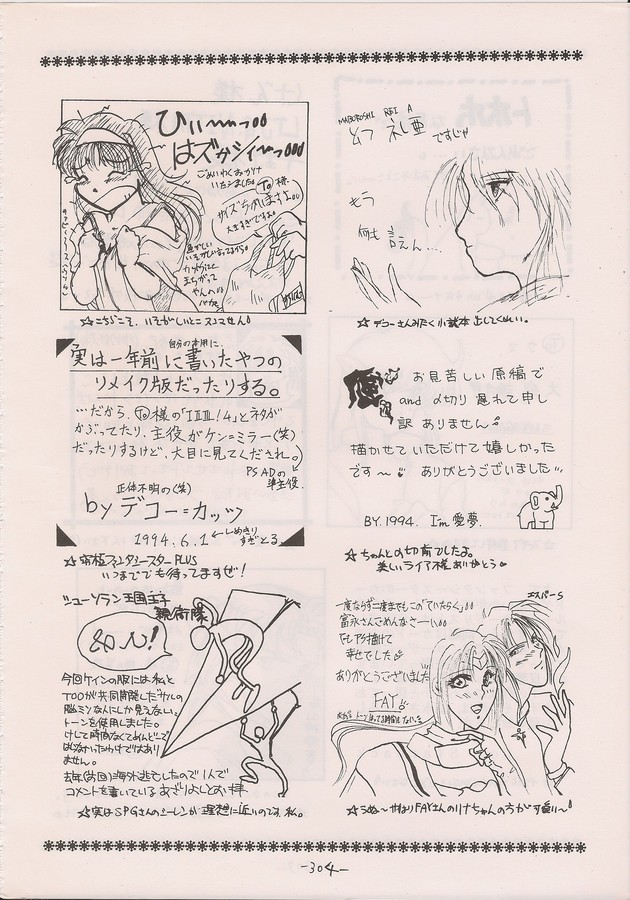 ひぃ〜〜っ
はズかシィ〜っ
ごめいわくおかけ
いたしました
To様
サイズちがいますよ
大きすぎですよ
☆こちらこそ、いそがしいとこスンマセん
MABOROSHI REI A
幻 礼亜 ですじゃ
もう
何も言えん…
☆デコーさんみたく小説本出してくれい。
自分の本用に、
実は一年前に書いたやつの
リメイク版だったりする。
…だから、To様の「ⅠⅡⅢ!4」とネタが
かぶってたり、主役がケン=ミラー(笑)
だったりするけど、大目に見てくだされ。
PSADの
準主役。
正体不明の(笑)
by デコー=カッツ
1994.6.1←しめきり
すぎとる。
☆究極ファンタシースターPLUS
いつまででも待ってますぜ!
お見苦しい原稿で
and 〆切り遅れて申し
訳ありません
描かせていただけて嬉しかった
です〜 ありがとうございました
BY.1994. I'm 愛夢.
☆ちゃんと〆切前でしたよ。
美しいライア様ありがとう
シューソラン王国王子
親衛隊
今回ケインの服には私と
TOOが共同開発したサルの
脳ミソな人にしか見えない、
トーンを使用しました。
けして時間なくてめんどーで
はらなかったわけではあり
ません。
去年(前回)海外逃亡したので1人で
コメントを書いているあざりよしとお
☆実はSPGさんのシーレンが理想に近いのです、私。
一度ならず二度までもこの「ていたらく」
富永さんごめんなさーい
でもPS描けて
幸せでした
ありがとうございました
FAY
エスパーS
☆うぬ〜やはりFAYさんのリナちゃんの方が可愛い〜
-304-